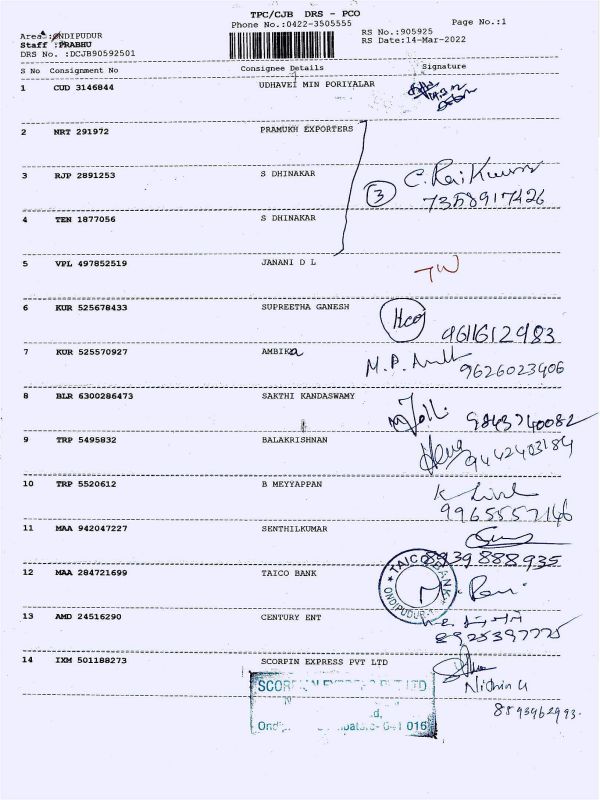 TPC/CJB DRS - PCO
Phone No.:0422-3505555
Page No.:1
Area :ONDIPUDUR
RS No.:905925
Staff :PRABHU
RS Date:14-Mar-2022
DRS No. :DCJB90592501
S No Consignment No Consignee Details Signature
1 CUD 3146844 UDHAVEI MIN PORIYALAR
2 NRT 291972 PRAMUKH EXPORTERS
3 RJP 2891253 S DHINAKAR 3 C. Raj Kumar
7358917426
4 TEN 1877056 S DHINAKAR
5 VPL 497852519 JANANI D L TW
6 KUR 525678433 SUPREETHA GANESH
9611612983
7 KUR 525570927 AMBIKa M.P.
9626023406
8 BLR 6300286473 SAKTHI KANDASWAMY
9843740082
9 TRP 5495832 BALAKRISHNAN
9442403184
10 TRP 5520612 B MEYYAPPAN K
9965557146
11 MAA 942047227 SENTHILKUMAR
8939888935
12 MAA 284721699 TAICO BANK
TAICO BANK
ONDIPUDUR
13 AMD 24516290 CENTURY ENT
8925397725
14 IXM 501188273 SCORPIN EXPRESS PVT LTD
SCORPIN EXPRESS PVT LTD
Nithin U
641 016
8593962993